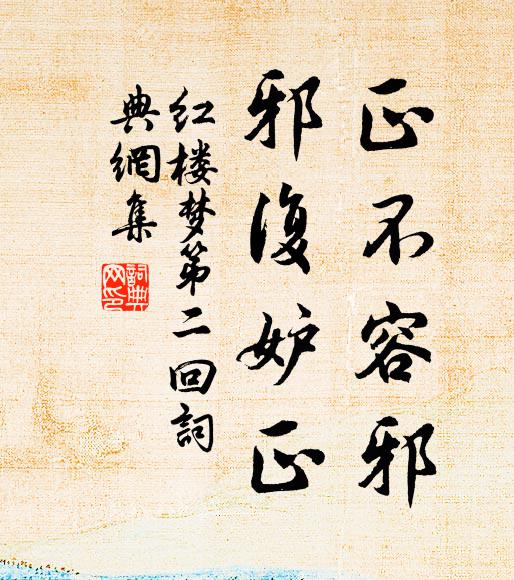 正不容邪
邪復妒正
红楼梦第二回詞
典網集
詞典
网印